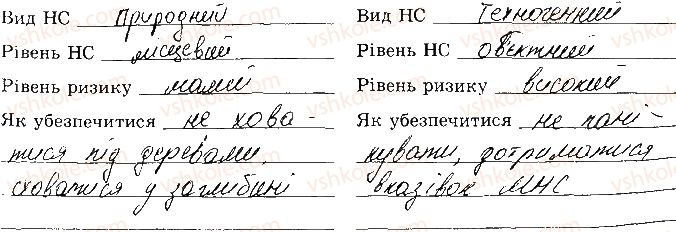 Вид НС Природний
Рівень НС місцевий
Рівень ризику малий
Як убезпечитися не хова-
тися під деревами,
сховатися у заглибині
Вид НС Техногенний
Рівень НС об'єктний
Рівень ризику високий
Як убезпечитися не пані-
кувати, дотриматися
вказівок МНС